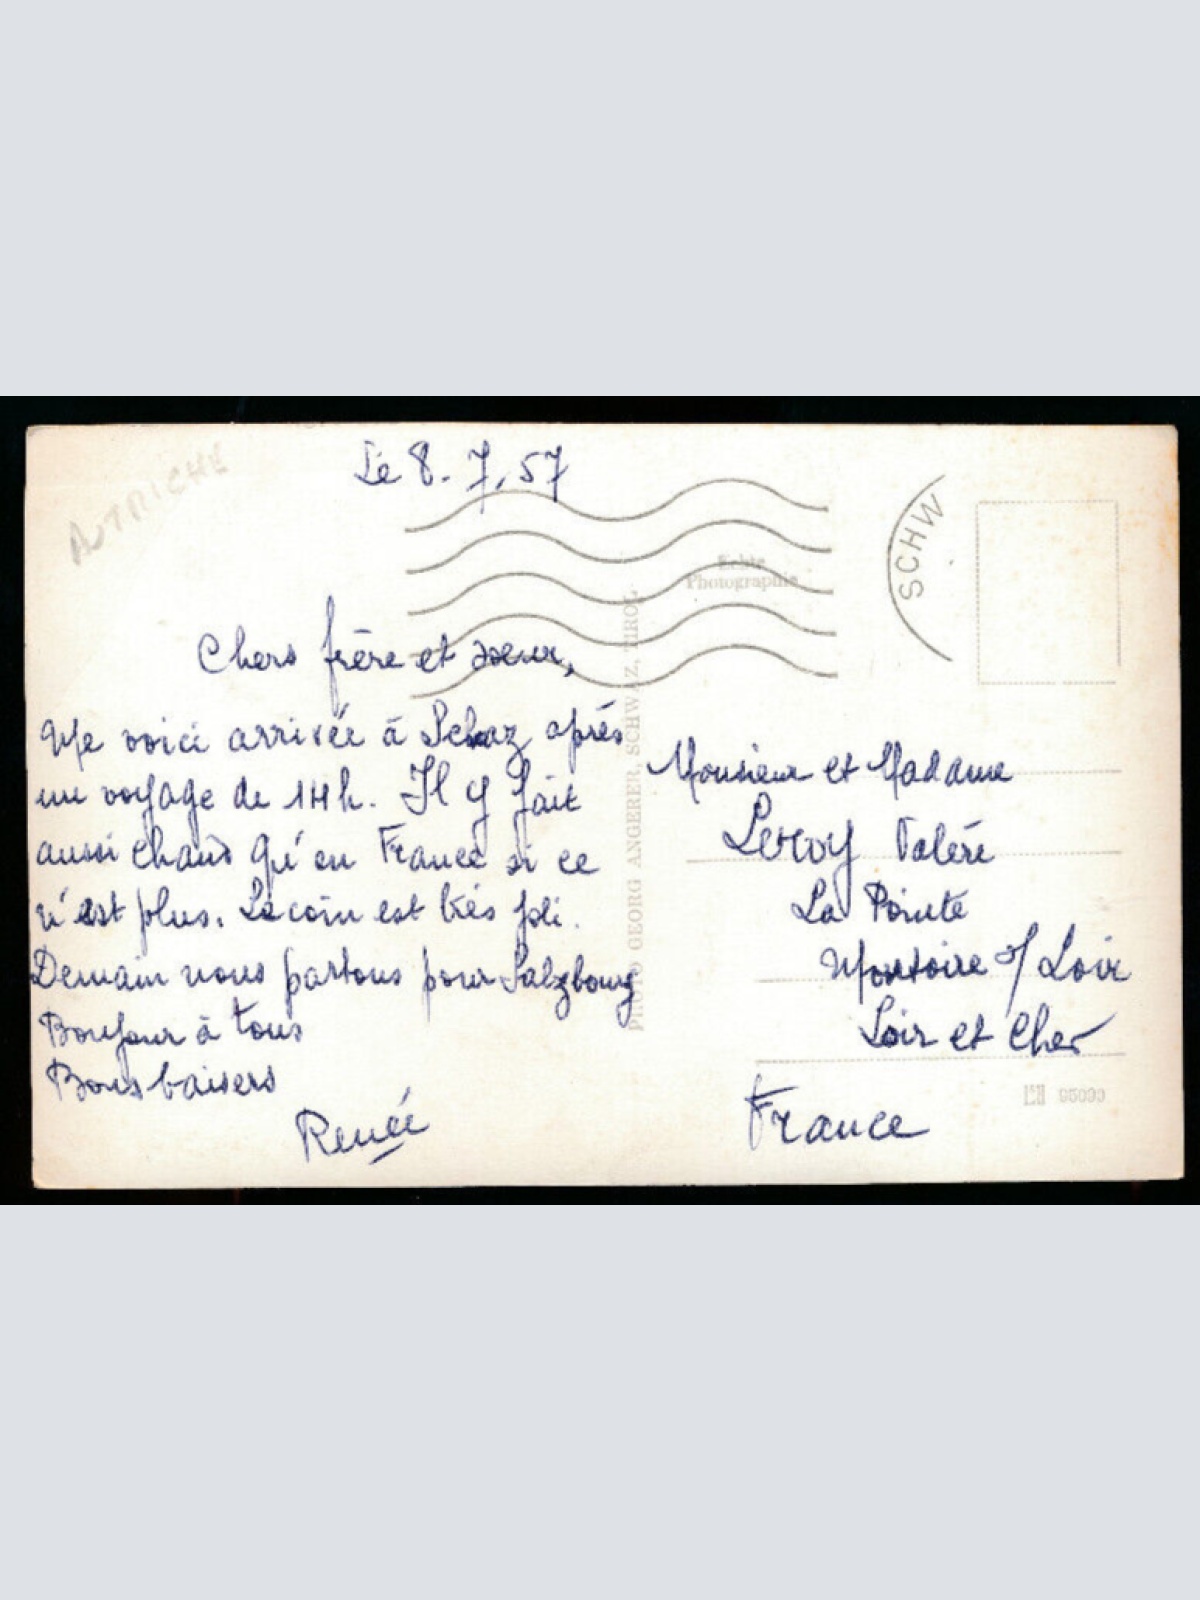 AUTRICHE
Le 8.7.57
SCHW
Echte
Photographie
Chers frère et soeur,
Me voici arrivée à Schwaz après
un voyage de 14h. Il y fait
aussi chaud qu'en France si ce
n'est plus. Le coin est très joli.
Demain nous partons pour Salzbourg
Bonjour à tous
Bons baisers
Renée
PHOTO GEORG ANGERER, SCHWAZ, TIROL
Monsieur et Madame
Leroy Valéré
La Pointe
Montoire s/ Loir
Loir et Cher
France